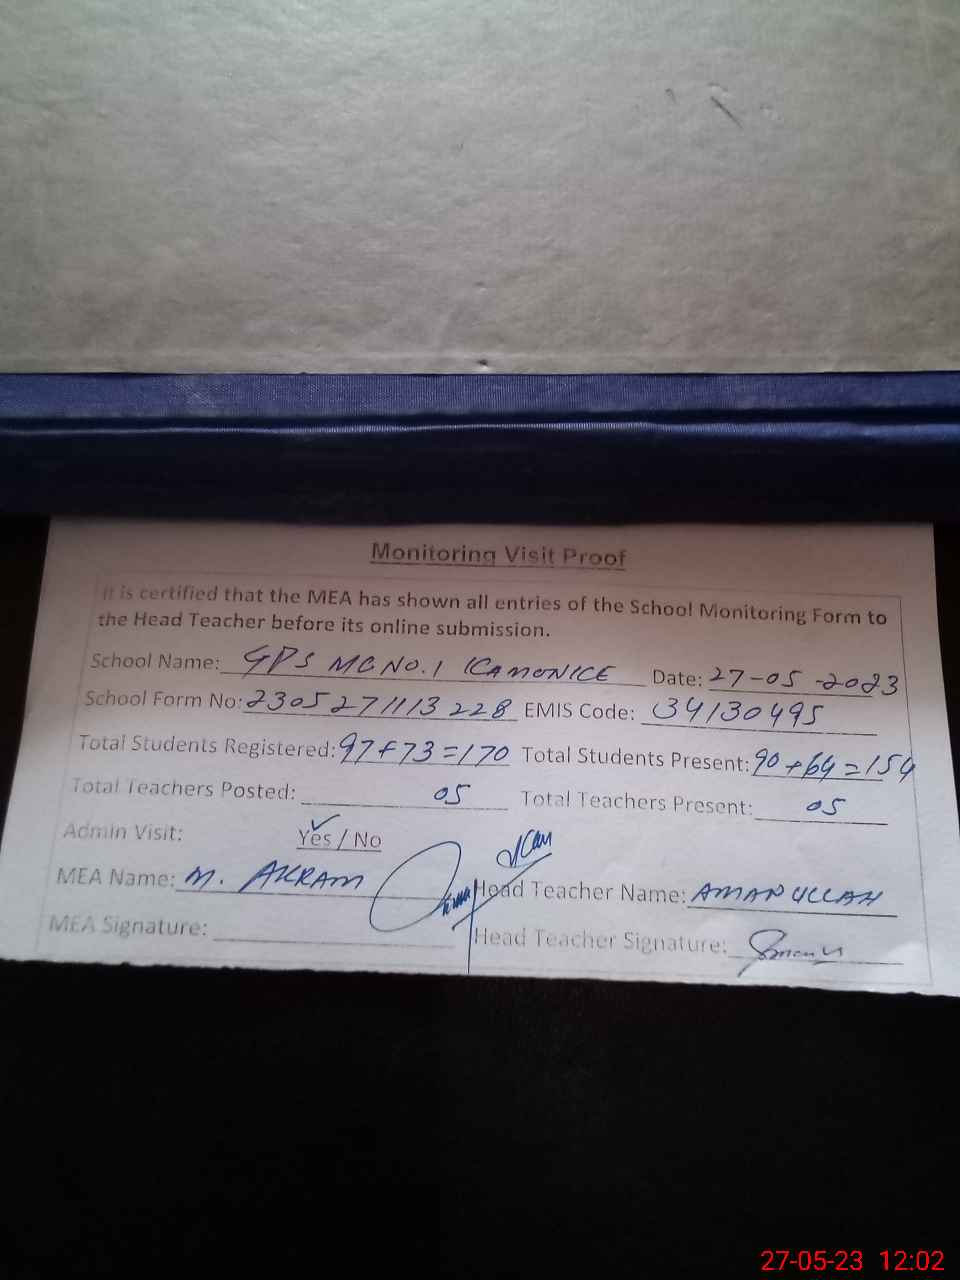 Monitoring Visit Proof
It is certified that the MEA has shown all entries of the School Monitoring Form to
the Head Teacher before its online submission.
School Name: GPS MC NO.1 KAMONKE Date: 27-05-2023
School Form No: 2305271113228 EMIS Code: 34130495
Total Students Registered: 97+73=170 Total Students Present: 90+64=154
Total Teachers Posted: 05 Total Teachers Present: 05
Admin Visit: Yes / No
MEA Name: M. AKRAM Head Teacher Name: AMANULLAH
MEA Signature: Head Teacher Signature:
27-05-23 12:02